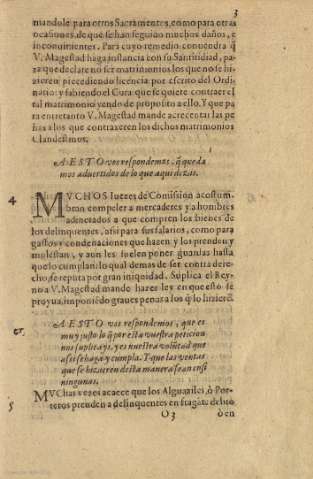 3
niandole para otros Sacramentos, como para otras
ocasiones, de que se han seguido muchos daños, e
inconuinientes. Para cuyo remedio conuendra q̃
V. Magestad haga instancia con su Santidad, pa-
ra que declare no ser matrimonios los que no se hi-
zieren precediendo licencia por escrito del Ordi-
nario: y sabiendo el Cura que se quiere contraer el
tal matrimonio yendo de proposito a ello. Y que pa
ra entretanto V. Magestad mande acrecentar las pe
nas a los que contraxeren los dichos matrimonios
Clandestinos.
A ESTO vos respondemos, q̃ queda-
mos aduertidos de lo que aqui dezis.
4
MVCHOS Iuezes de Comission acostum-
bran compeler a mercaderes y a hombres
adenerados a que compren los bienes de
los delinquentes, assi para sus salarios, como para
gastos y condenaciones que hazen, y los prenden y
molestan, y aun les suelen poner guardas hasta
que lo cumplan: lo qual demas de ser contra dere-
cho, se reputa por gran iniquidad. Suplica el Rey-
no a V. Magestad mande hazer ley en que esto se
prouea, imponiẽdo graues penas a los q̃ lo hiziere.
A ESTO vos respondemos, que es
muy justo lo q̃ por esta vuestra peticion
nos suplicays, y es nuestra volũtad que
assi se haga y cumpla. Y que las ventas
que se hizieren desta manera sean en si
ningunas.
5
MVchas vezes acaece que los Alguaziles, ò Por-
teros prenden a delinquentes en fragãte delito
O3
ò en